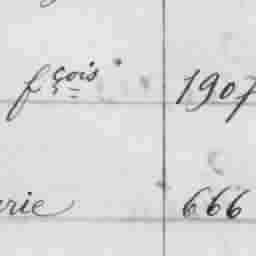 fçois 1907
erie 666